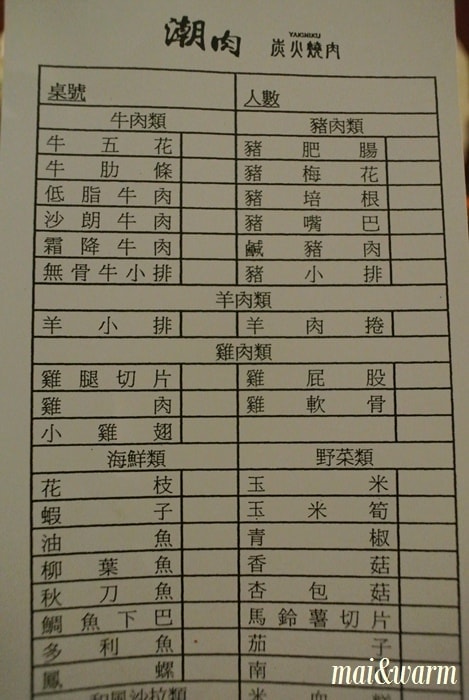 潮肉 YAKINIKU
炭火燒肉
桌號 人數
牛肉類 豬肉類
牛五花 豬肥腸
牛肋條 豬梅花
低脂牛肉 豬培根
沙朗牛肉 豬嘴巴
霜降牛肉 鹹豬肉
無骨牛小排 豬小排
羊肉類
羊小排 羊肉捲
雞肉類
雞腿切片 雞屁股
雞肉 雞軟骨
小雞翅
海鮮類 野菜類
花枝 玉米
蝦子 玉米筍
油魚 青椒
柳葉魚 香菇
秋刀魚 杏包菇
鯛魚下巴 馬鈴薯切片
多利魚 茄子
鳳螺 南
和風沙拉類 米血
mai&warm